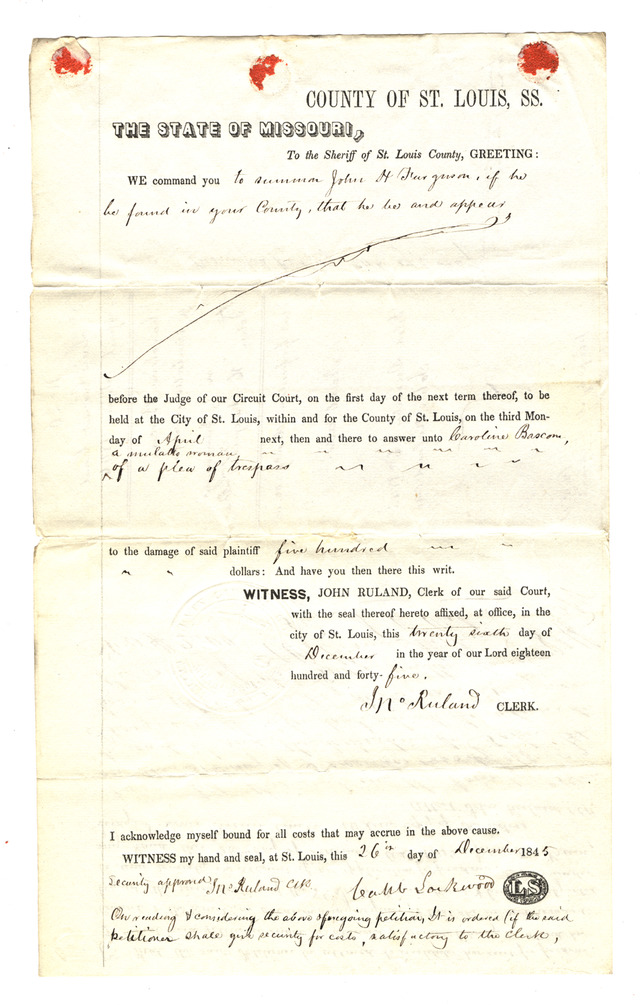 COUNTY OF ST. LOUIS, SS.
THE STATE OF MISSOURI,
To the Sheriff of St. Louis County, GREETING:
WE command you to summon John H Furguson, if he
be found in your County, that he be and appear
before the Judge of our Circuit Court, on the first day of the next term thereof, to be
held at the City of St. Louis, within and for the County of St. Louis, on the third Mon-
day of April next, then and there to answer unto Caroline Bascom,
a mulatto woman,
of a plea of trespass
to the damage of said plaintiff five hundred
dollars: And have you then there this writ.
WITNESS, JOHN RULAND, Clerk of our said Court,
with the seal thereof hereto affixed, at office, in the
city of St. Louis, this twenty sixth day of
December in the year of our Lord eighteen
hundred and forty-five.
Jno Ruland CLERK.
I acknowledge myself bound for all costs that may accrue in the above cause.
WITNESS my hand and seal, at St. Louis, this 26th day of December 1845
Security approved Jno Ruland Clk Lockwood LS
On reading & considering the above & foregoing petition, It is ordered (if the said
petitioner shall give security for costs, satisfactory to the Clerk,